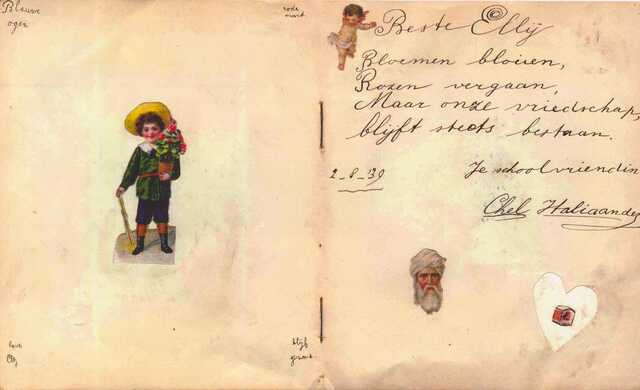 Blauwe
ogen
rode
mont
Beste Elly
Bloemen bloeien,
Rozen vergaan,
Maar onze vriedschap,
blijft steets bestaan.
2-8-39
Je schoolvriendin
Chel Haliaander
lieve
Elly
blijf
gezont